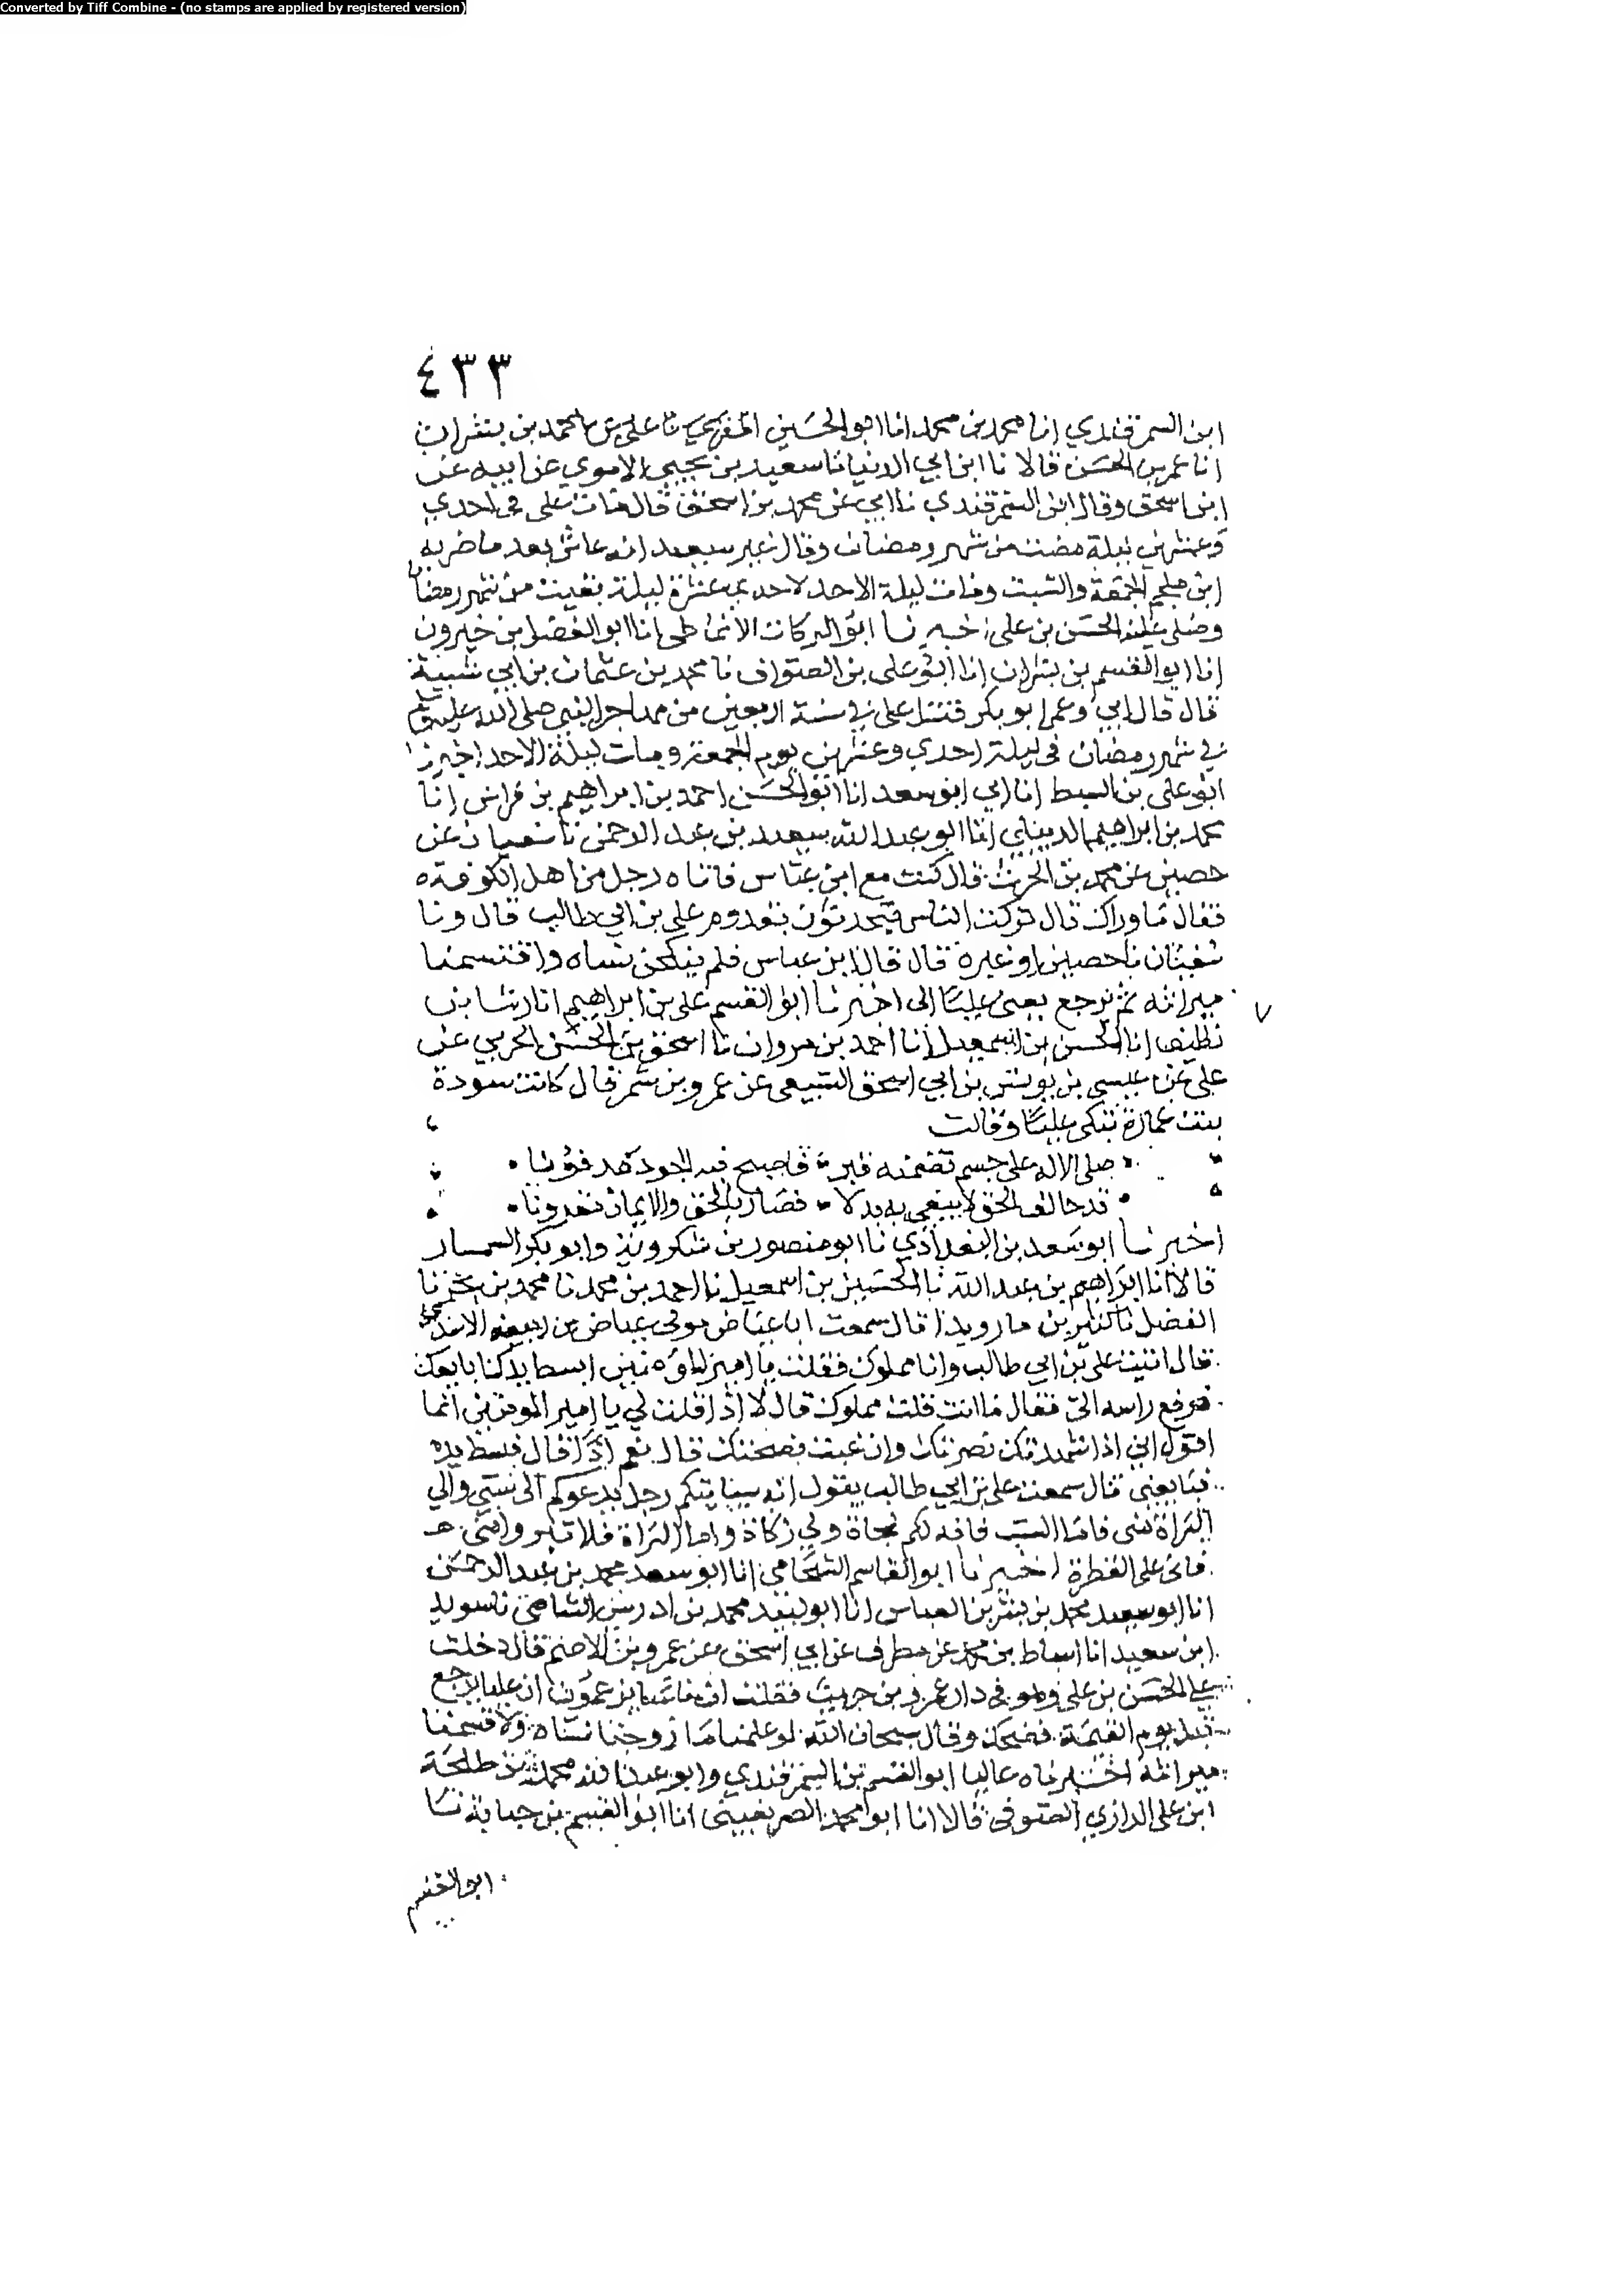 Converted by Tiff Combine - (no stamps are applied by registered version)
٤٣٣
ابن السمرقندي انا محمد بن محمد انا ابو الحسين المقري نا علي بن محمد بن بشران
انا عمر بن الحسن قالا نا ابن ابي الدنيا نا سعيد بن يحيى الاموي عن ابيه عن
ابن اسحق وقال ابن السمرقندي نا ابي عن محمد بن اسحق قال مات علي في احدي
وعشرين ليلة مضت من شهر رمضان وقال غير سعيد انه عاش بعد ما ضربه
ابن ملجم الجمعة والسبت ومات ليلة الاحد لاحدي عشرة ليلة بقيت من شهر رمضان
وصلى عليه الحسن بن علي اخبرنا ابو البركات الانماطي انا ابو الفضل بن خيرون
انا ابو القسم بن بشران انا ابو علي بن الصواف نا محمد بن عثمان بن ابي شيبة
قال قال ابي وعمي ابو بكر قتل علي في سنة اربعين من مهاجر النبي صلى الله عليه وسلم
في شهر رمضان في ليلة احدي وعشرين يوم الجمعة ومات ليلة الاحد اخبرنا
ابو علي بن السبط انا ابي ابو سعد انا ابو الحسن احمد بن ابراهيم بن فراس انا
محمد بن ابراهيم الديبلي انا ابو عبد الله سعيد بن عبد الرحمن نا سفيان عن
حصين عن محمد بن الحرث قال كنت مع ابن عباس فاتاه رجل من اهل الكوفة
فقال ما وراك قال تركت الناس يتحدثون بقدوم علي بن ابي طالب قال ونا
سفيان نا حصين او غيره قال قال ابن عباس فلم ننكحن نساه واقتسمنا
ميراثه ثم يرجع يعني عليا الى اخبرنا ابو القسم علي بن ابراهيم انا رشا بن
نظيف انا الحسن بن اسمعيل انا احمد بن مروان نا اسحق بن الحسن الحربي عن
علي عن عيسى بن يونس بن ابي اسحق السبيعي عن عمرو بن شمر قال كانت سودة
بنت عمارة تبكي عليا وقالت
صلى الاله على جسم تضمنه قبر فاصبح فيه الجود مدفونا
قد حالف الحق لا يبغي به بدلا فصار بالحق والايمان مقرونا
اخبرنا ابو سعد بن البغدادي نا ابو منصور بن شكرويه وابو بكر السمسار
قالا انا ابراهيم بن عبد الله نا الحسين بن اسمعيل نا احمد بن محمد نا محمد بن نا
الفضل نا كثير بن قال سمعت ابا عياض مولى عياض بن ربيعة الاسدي
قال اتيت علي بن ابي طالب وانا مملوك فقلت يا امير المؤمنين ابسط يدك ابايعك
فرفع راسه الي فقال ما انت قلت مملوك قال لا اذا قلت لي يا امير المومنين انما
اقول اني اذا شهدتك نصرتك وان غبت نصحتك قال نعم اذا قال فبسط يده
فبايعني قال سمعت علي بن ابي طالب يقول انه سياتيكم رجل يدعوكم الى سبي والي
البراة مني فاما السب فانه لكم نجاة ولي زكاة واما البراة فلا تبروا مني
فاني على الفطرة اخبرنا ابو القاسم الشحامي انا ابو سعد محمد بن عبد الرحمن
انا ابو سعيد محمد بن بشر بن العباس انا ابو لبيد محمد بن ادريس الشامي نا سويد
ابن سعيد انا اسباط بن محمد عن مطرف عن ابي اسحق عن عمرو بن الاصم قال دخلت
على الحسن بن علي وهو في دار عمرو بن حريث فقلت ان ناسا يزعمون ان عليا يرجع
قبل يوم القيمة فضحك وقال سبحان الله لو علمنا ما زوجنا نساه ولا قسمنا
ميراثه اخبرناه عاليا ابو القسم بن السمرقندي وابو عبد الله محمد بن طلحة
ابن علي الرازي الصوفي قالا انا ابو محمد الصريفيني انا ابو القسم بن حبابة نا
ابو القسم